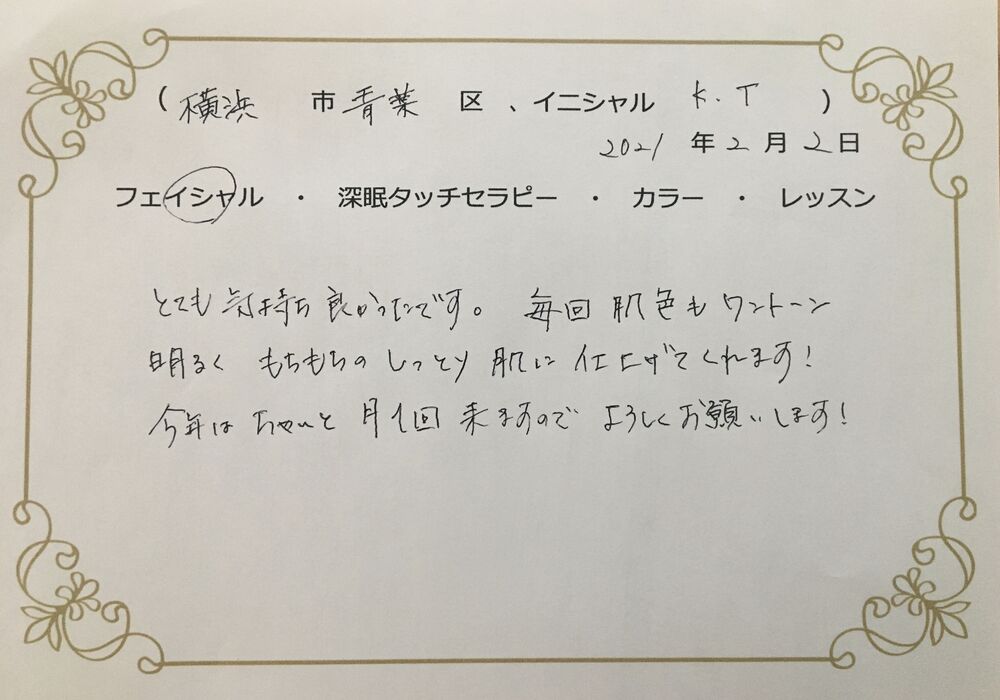 (横浜 市 青葉 区 、イニシャル K.T )
2021 年 2 月 2 日
フェイシャル ・ 深眠タッチセラピー ・ カラー ・ レッスン
とても気持ち良かったです。 毎回 肌色も ワントーン
明るく もちもちの しっとり 肌に 仕上げてくれます!
今年は ちゃんと 月1回 来ますので よろしくお願いします!